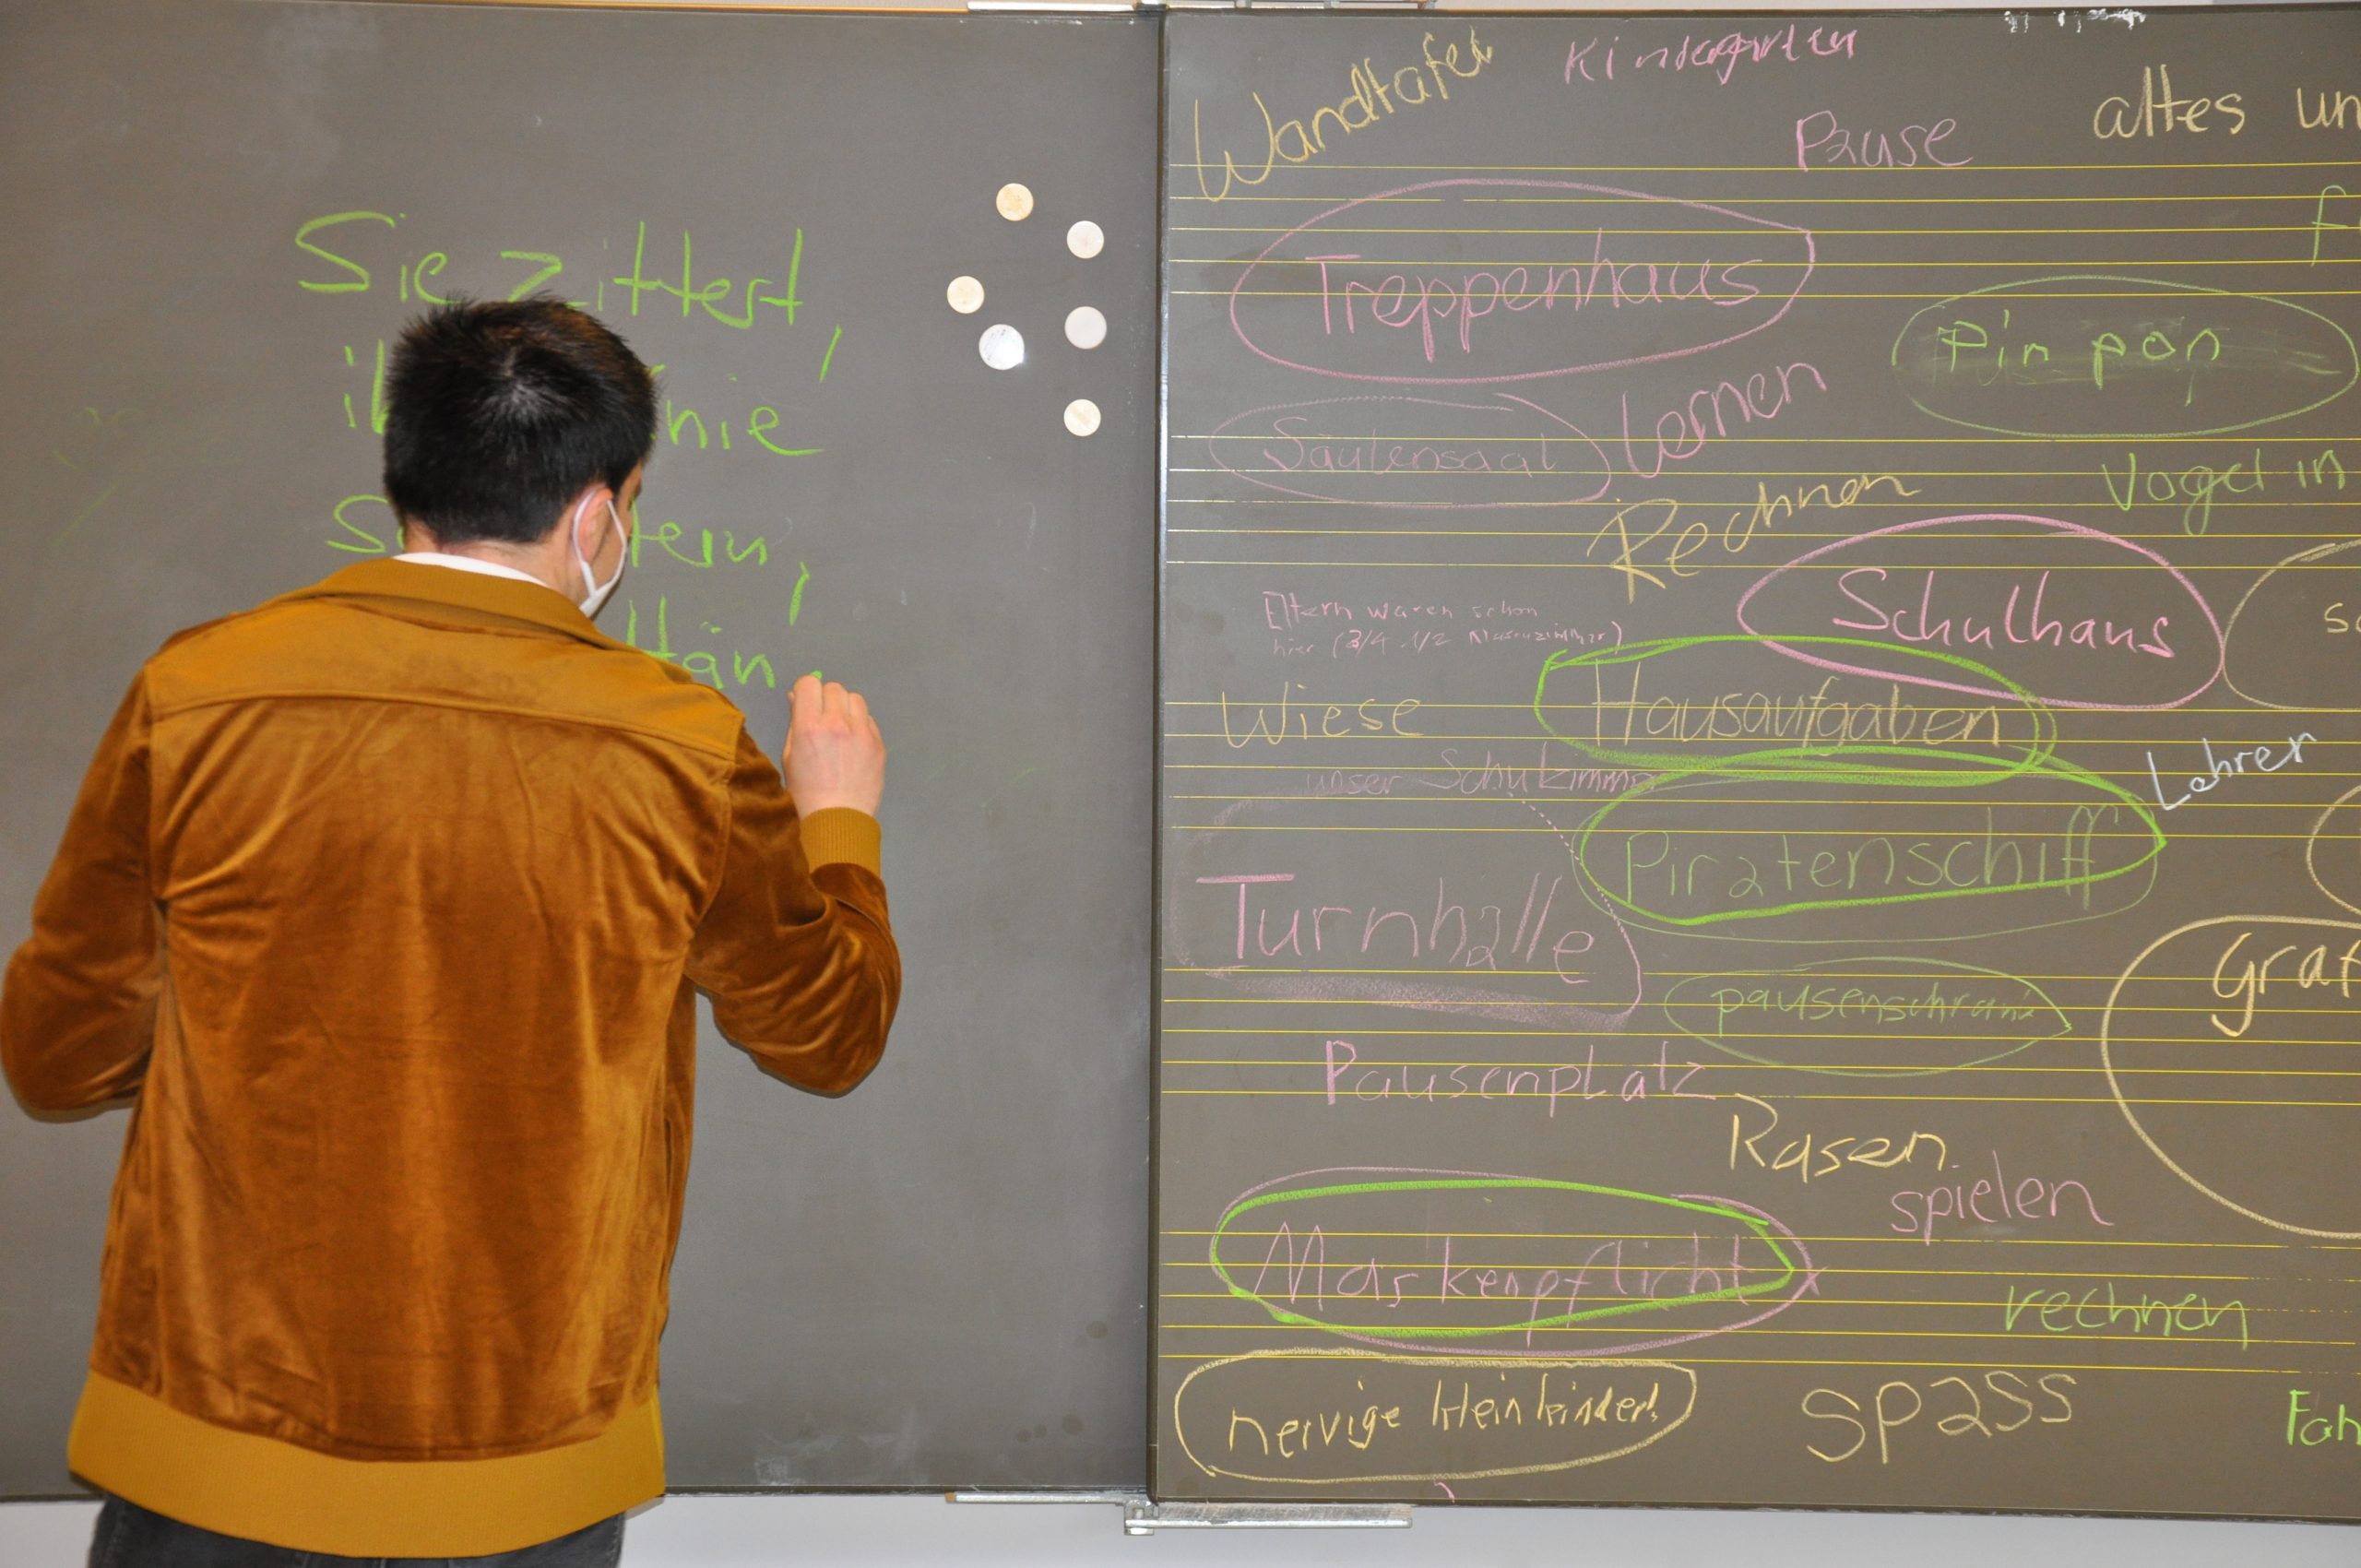 Sie zittert,
nie
Wandtafel
Kindergarten
Pause
altes un
Treppenhaus
Pin pon
Säulensaal
Lernen
Vogel in
Rechnen
Schulhaus
Eltern waren schon
hier (3/4 1/2 Klassenzimmer)
Wiese
Hausaufgaben
unser Schulzimmer
Lehrer
Piratenschiff
Turnhalle
Graf
pausenschrank
Pausenplatz
Rasen
spielen
Maskenpflicht
rechnen
nervige Kleinkinder!
Spass
Fah